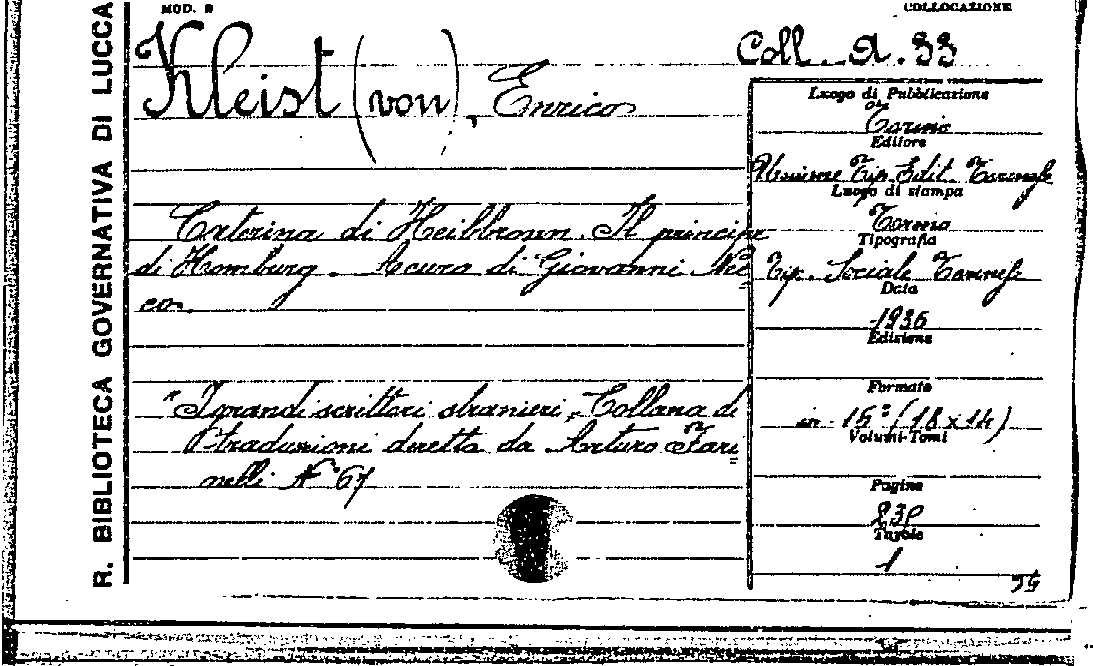 R. BIBLIOTECA GOVERNATIVA DI LUCCA
MOD. B
COLLOCAZIONE
Coll. A. 33
Kleist (von), Enrico
Caterina di Heilbronn. Il principe
di Homburg. A cura di Giovanni Ne
co.
"I grandi scrittori stranieri, Collana di
traduzioni diretta da Arturo Fari
nelli N° 67
Luogo di Pubblicazione
Torino
Editore
Unione Tip. Edit. Torinese
Luogo di stampa
Torino
Tipografia
Tip. Sociale Torinese
Data
1936
Edizione
Formato
in-15° (18x14)
Volumi-Tomi
Pagine
Tavole
1